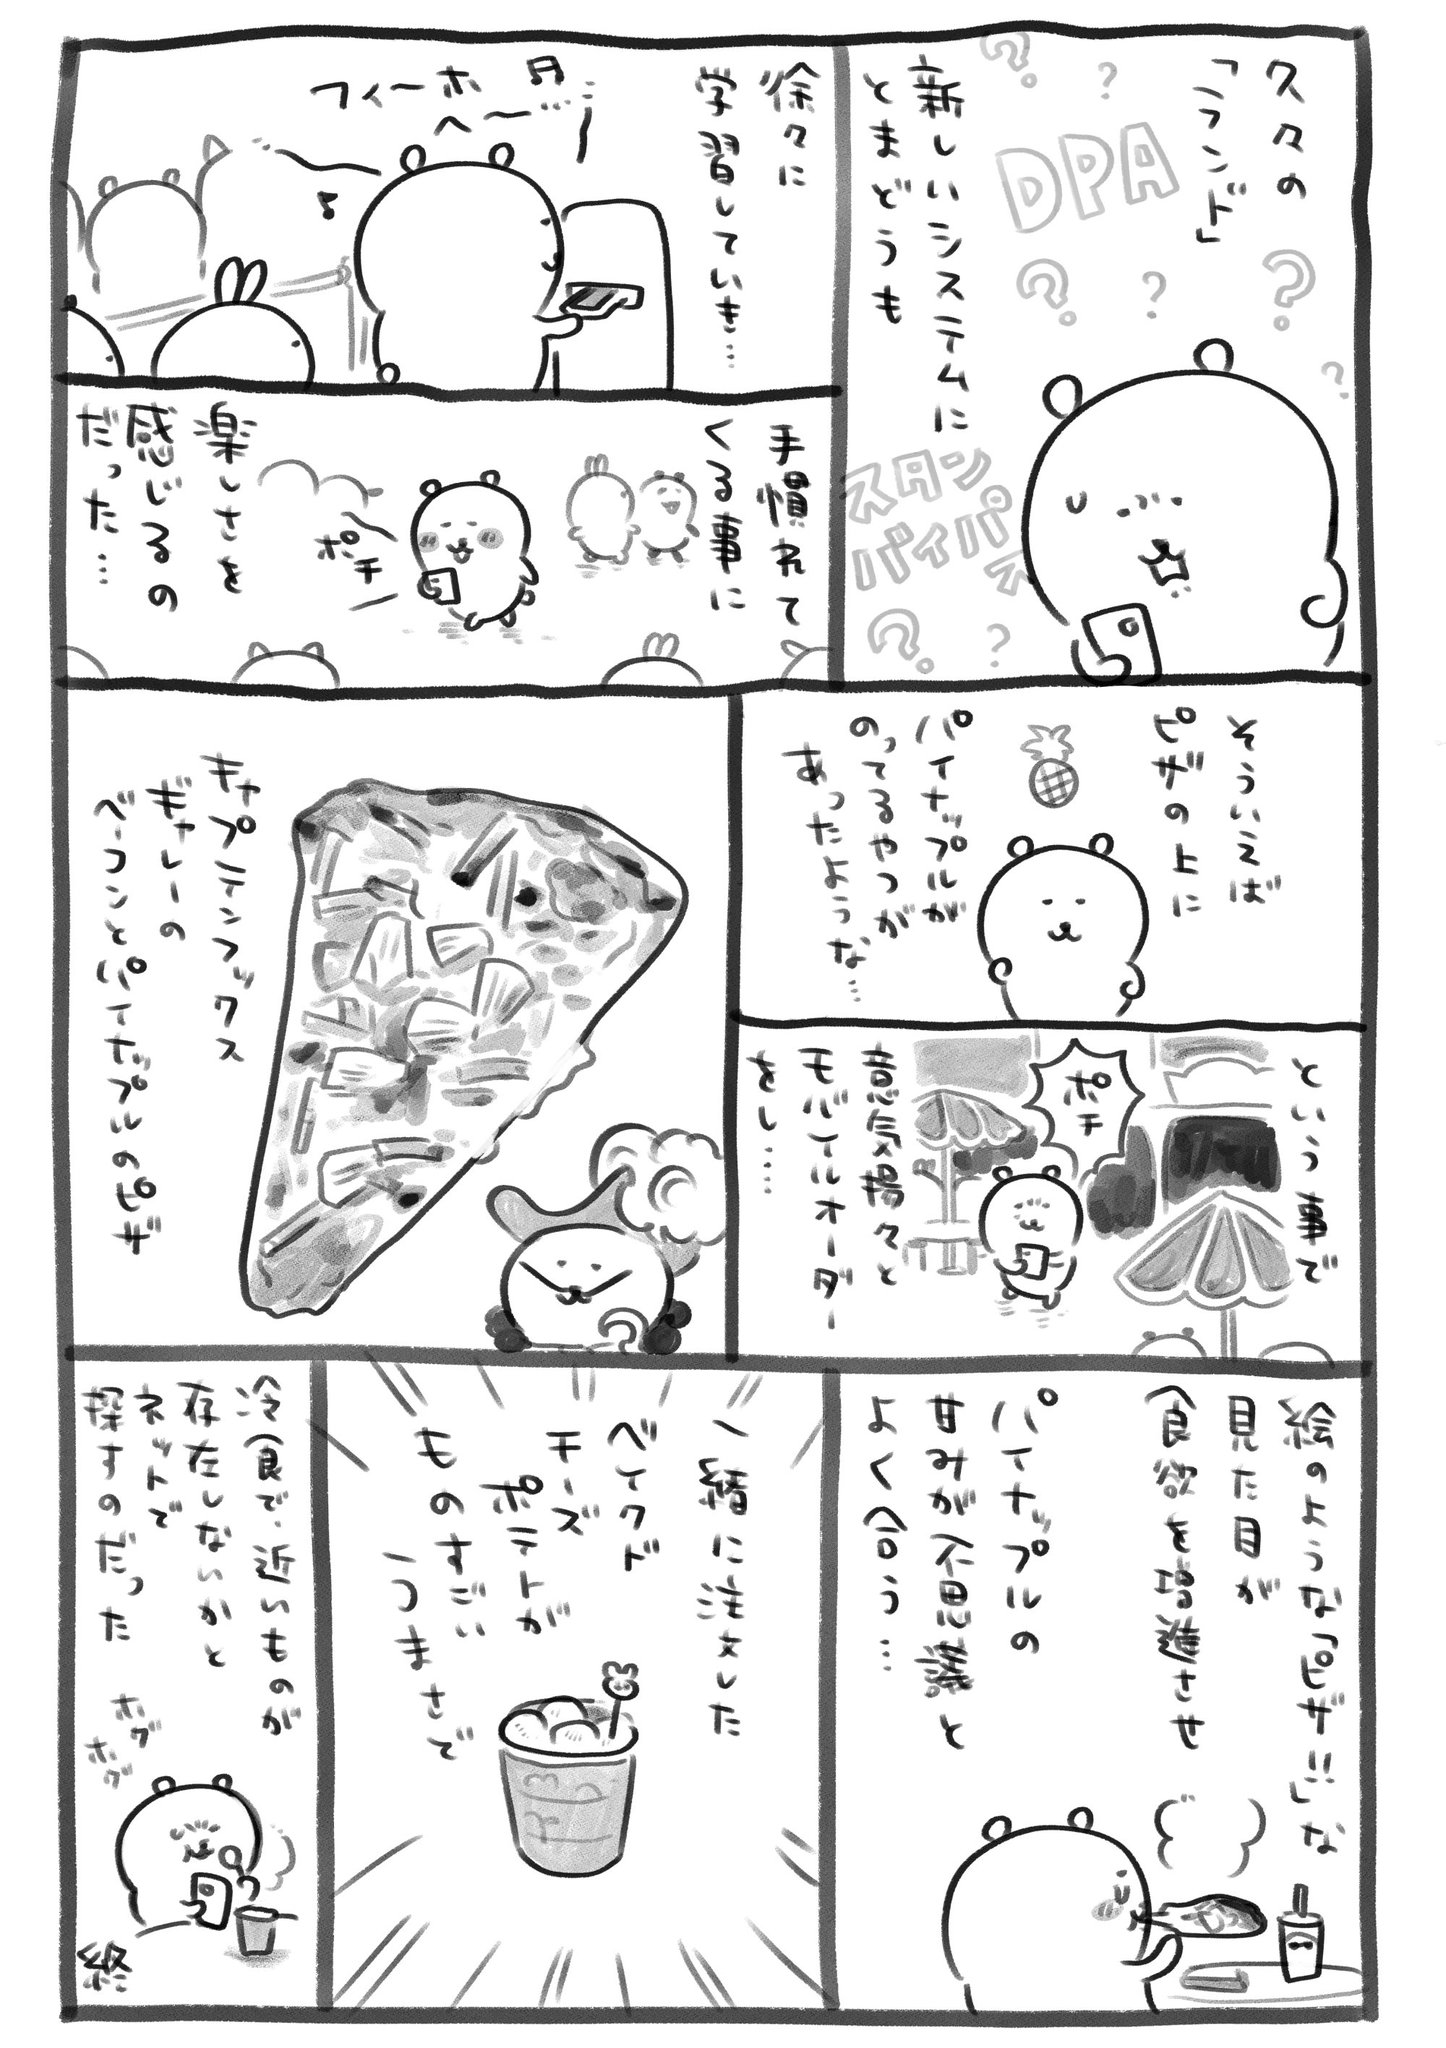 久々の
「ランド」
DPA
新しいシステムに
とまどうも
スタン
バイパ
ス
徐々に
学習していき…
フィーホー
手慣れて
くる事に
ポチ
楽しさを
感じるの
だった…
そういえば
ピザの上に
パイナップルが
のってるやつが
あったような…
という事で
ポチ
意気揚々と
モバイルオーダー
をし……
キャプテンフックス
ギャレーの
ベーコンとパイナップルのピザ
絵のような「ピザ!!」な
見た目が
食欲を増進させ
パイナップルの
甘みが不思議と
よく合う…
一緒に注文した
ベイクド
チーズ
ポテトが
ものすごい
うまさで
冷食で近いものが
存在しないかと
ネットで
探すのだった
ホグ
ホグ
終